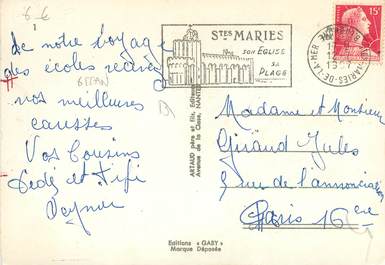 6 €
1
de notre voyage
des écoles recevez
nos meilleures
caresses
Vos Cousins
Dédé et Fifi
STES MARIES
SON EGLISE
SA
PLAGE
MARIES-DE-LA-MER
15F
ARTAUD père et fils, Editeurs
Avenue de la Close, NANTES
Madame et Monsieur
Giraud Jules
rue de l'annonciation
Paris 16 ème
Editions « GABY »
Marque Déposée